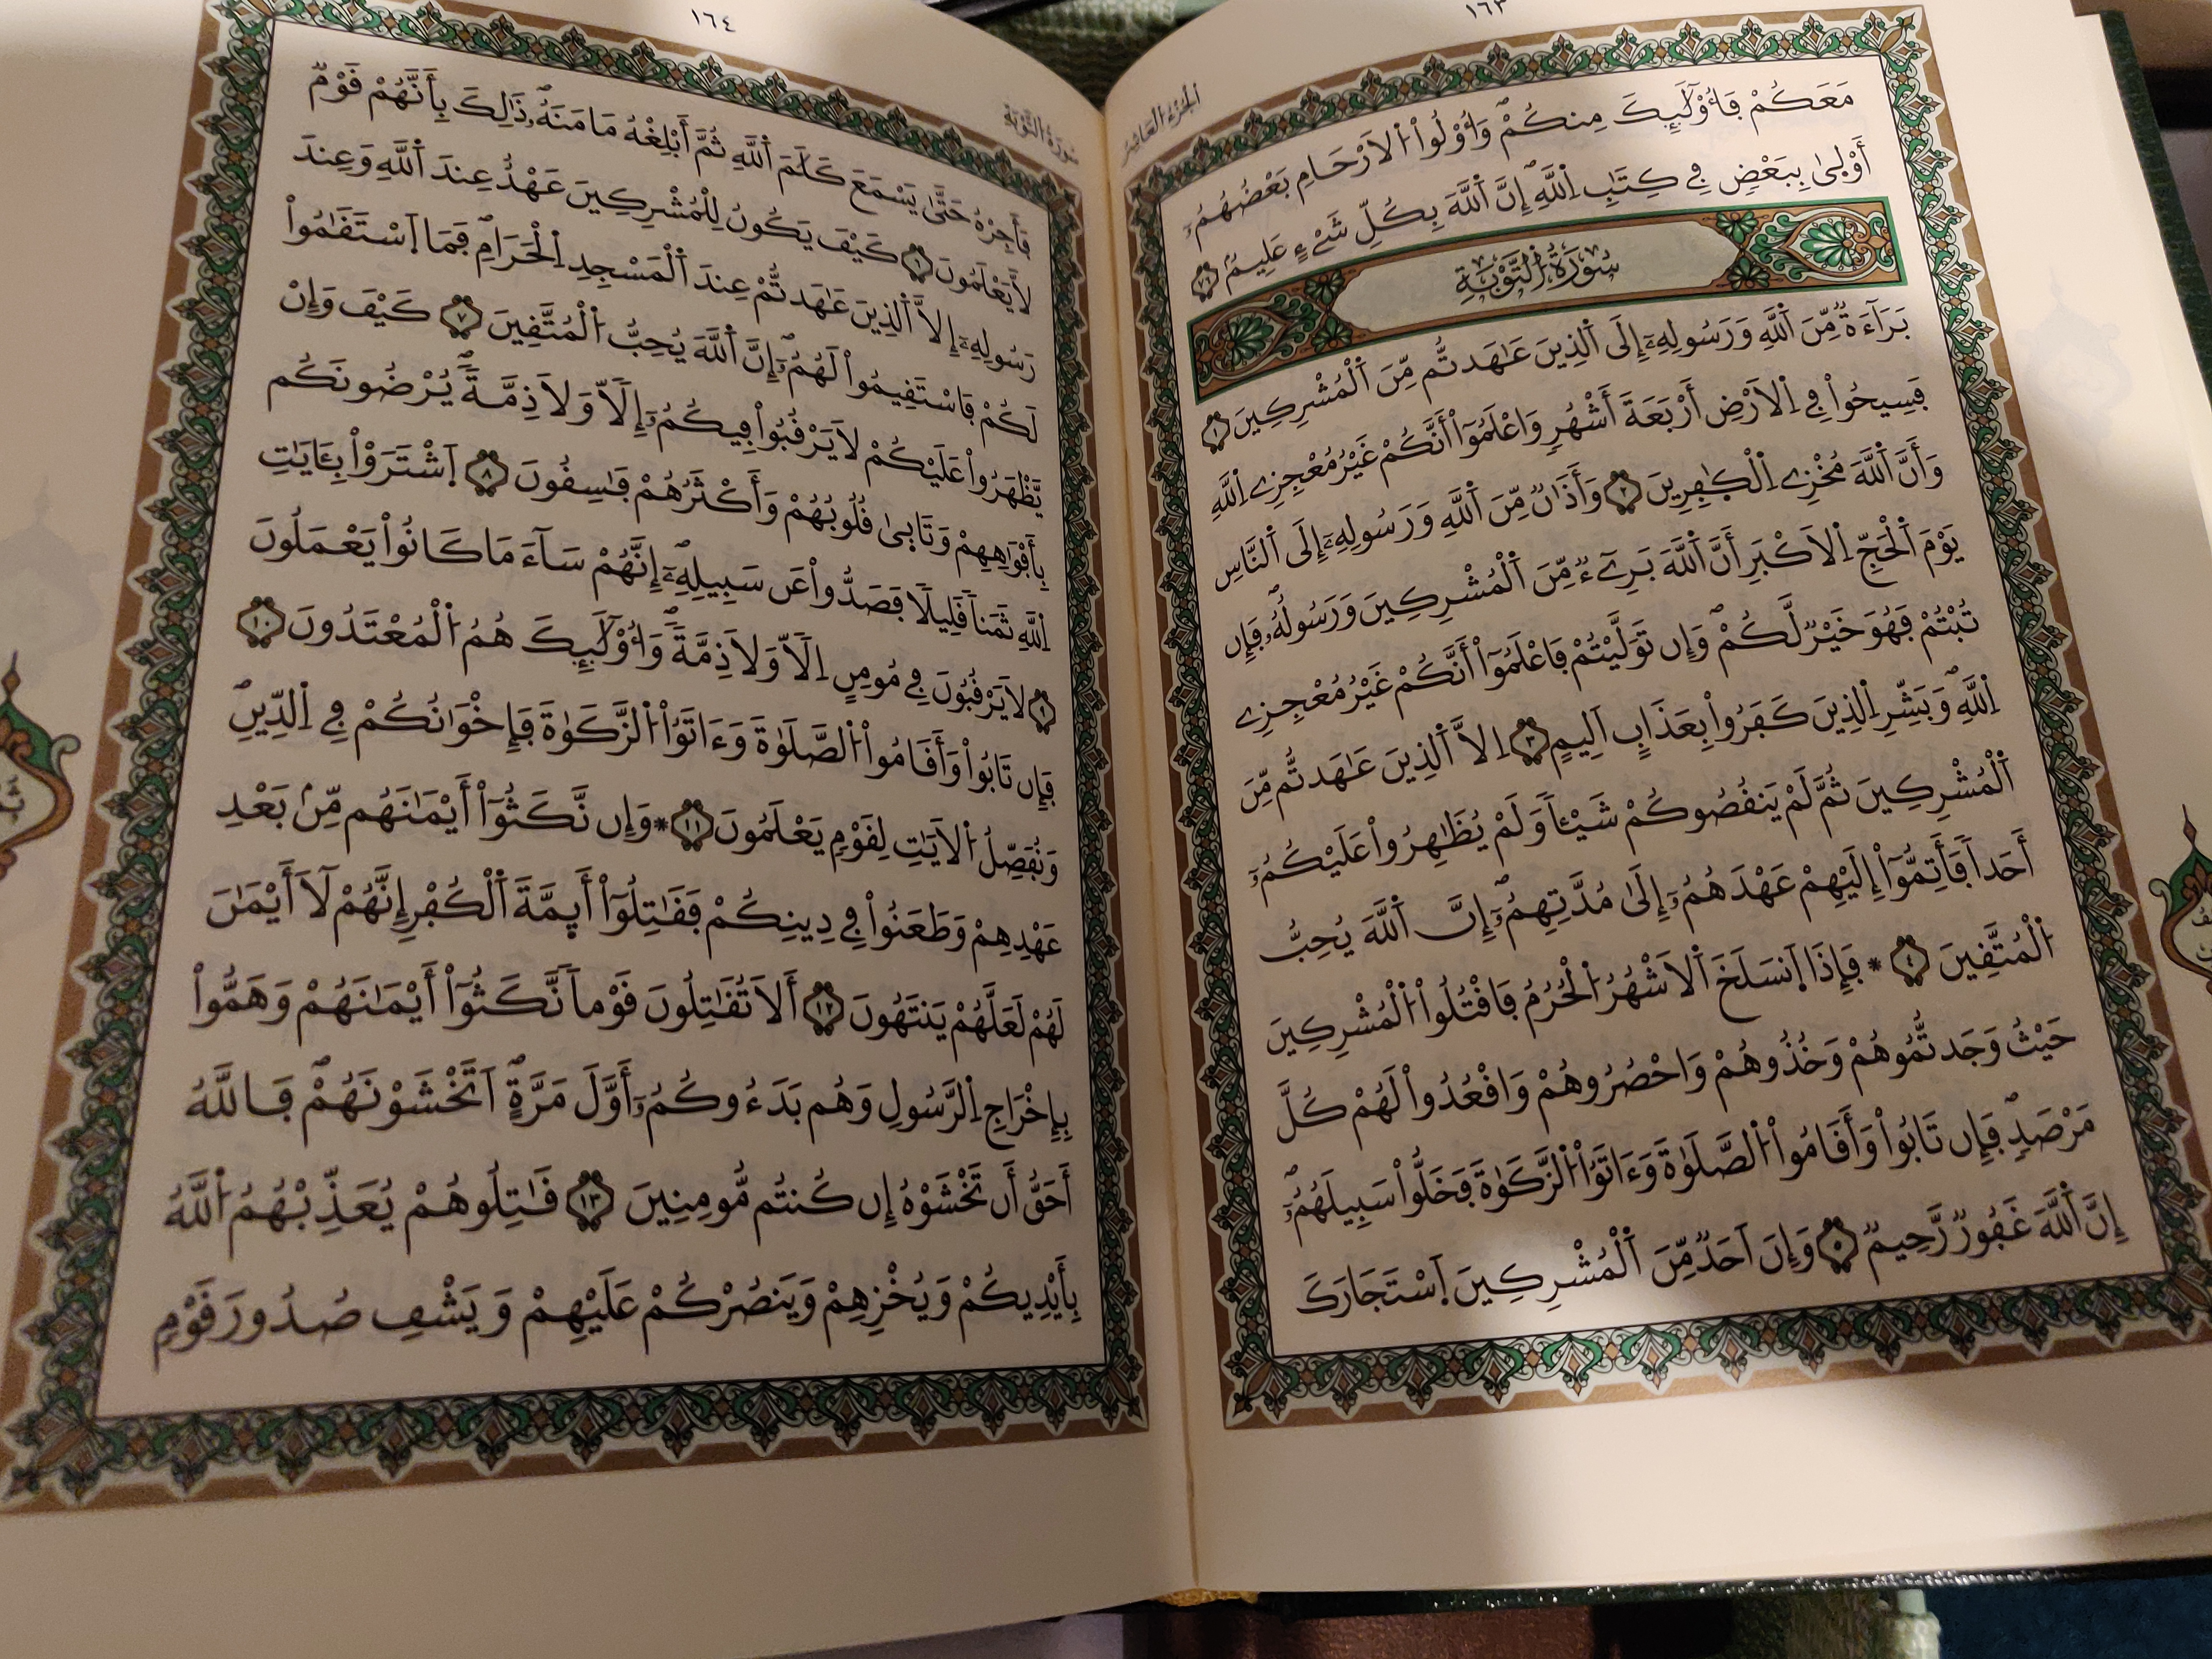 ١٦٣
الجزء العاشر
مَعَكُمْ فَأُوْلَٰٓئِكَ مِنكُمْۖ وَأُوْلُواْ اُلَارْحَامِ بَعْضُهُمُۥٓ
أَوْلَىٰ بِبَعْضٖ فِي كِتَٰبِ اِللَّهِۖ إِنَّ اَللَّهَ بِكُلِّ شَےْءٍ عَلِيمٞ ٧٦
سُورَةُ التَّوْبَةِ
بَرَآءَةٞ مِّنَ اَللَّهِ وَرَسُولِهِۦٓ إِلَى اَلذِينَ عَٰهَدتُّم مِّنَ اَلْمُشْرِكِينَ ١
فَسِيحُواْ فِي اِلَارْضِ أَرْبَعَةَ أَشْهُرٖ وَاعْلَمُوٓاْ أَنَّكُمْ غَيْرُ مُعْجِزِے اِللَّهِ
وَأَنَّ اَللَّهَ مُخْزِے اِلْكٰ۪فِرِينَ ٢ وَأَذَٰنٞ مِّنَ اَللَّهِ وَرَسُولِهِۦٓ إِلَى اَلنَّاسِ
يَوْمَ اَلْحَجِّ اِلَاكْبَرِ أَنَّ اَللَّهَ بَرِےٓءٞ مِّنَ اَلْمُشْرِكِينَ وَرَسُولُهُۥۖ فَإِن
تُبْتُمْ فَهُوَ خَيْرٞ لَّكُمْۖ وَإِن تَوَلَّيْتُمْ فَاعْلَمُوٓاْ أَنَّكُمْ غَيْرُ مُعْجِزِے
اِللَّهِۖ وَبَشِّرِ اِلذِينَ كَفَرُواْ بِعَذَابٍ اَلِيمٍ ٣ اِلَّا اَلذِينَ عَٰهَدتُّم مِّنَ
اَلْمُشْرِكِينَ ثُمَّ لَمْ يَنقُصُوكُمْ شَيْـٔاٗ وَلَمْ يُظَٰهِرُواْ عَلَيْكُمُۥٓ
أَحَداٗ فَأَتِمُّوٓاْ إِلَيْهِمْ عَهْدَهُمُۥٓ إِلَىٰ مُدَّتِهِمُۥٓۖ إِنَّ اَللَّهَ يُحِبُّ
اُلْمُتَّقِينَ ٤ * فَإِذَا اَنسَلَخَ اَلَاشْهُرُ اُلْحُرُمُ فَاقْتُلُواْ اُلْمُشْرِكِينَ
حَيْثُ وَجَدتُّمُوهُمْ وَخُذُوهُمْ وَاحْصُرُوهُمْ وَاقْعُدُواْ لَهُمْ كُلَّ
مَرْصَدٖۖ فَإِن تَابُواْ وَأَقَامُواْ اُلصَّلَوٰةَ وَءَاتَوُاْ اُلزَّكَوٰةَ فَخَلُّواْ سَبِيلَهُمُۥٓۖ
إِنَّ اَللَّهَ غَفُورٞ رَّحِيمٞ ٥ وَإِنَ اَحَدٞ مِّنَ اَلْمُشْرِكِينَ اَسْتَجَارَكَ
١٦٤
سورة التوبة
فَأَجِرْهُ حَتَّىٰ يَسْمَعَ كَلَٰمَ اَللَّهِ ثُمَّ أَبْلِغْهُ مَامَنَهُۥۖ ذَٰلِكَ بِأَنَّهُمْ قَوْمٞ
لَّا يَعْلَمُونَ ٦ كَيْفَ يَكُونُ لِلْمُشْرِكِينَ عَهْدٌ عِندَ اَللَّهِ وَعِندَ
رَسُولِهِۦٓ إِلَّا اَلذِينَ عَٰهَدتُّمْ عِندَ اَلْمَسْجِدِ اِلْحَرَامِۖ فَمَا اَسْتَقَٰمُواْ
لَكُمْ فَاسْتَقِيمُواْ لَهُمُۥٓۖ إِنَّ اَللَّهَ يُحِبُّ اُلْمُتَّقِينَ ٧ كَيْفَ وَإِنْ
يَّظْهَرُواْ عَلَيْكُمْ لَا يَرْقُبُواْ فِيكُمُۥٓ إِلّاٗ وَلَا ذِمَّةٗۖ يُرْضُونَكُم
بِأَفْوَٰهِهِمْ وَتَابَىٰ قُلُوبُهُمْ وَأَكْثَرُهُمْ فَٰسِقُونَ ٨ اَشْتَرَوْاْ بِـَٔايَٰتِ
اِللَّهِ ثَمَناٗ قَلِيلاٗ فَصَدُّواْ عَن سَبِيلِهِۦٓۖ إِنَّهُمْ سَآءَ مَا كَانُواْ يَعْمَلُونَ
٩ لَا يَرْقُبُونَ فِي مُومِنٍ اِلّاٗ وَلَا ذِمَّةٗۖ وَأُوْلَٰٓئِكَ هُمُ اُلْمُعْتَدُونَ ١٠
فَإِن تَابُواْ وَأَقَامُواْ اُلصَّلَوٰةَ وَءَاتَوُاْ اُلزَّكَوٰةَ فَإِخْوَٰنُكُمْ فِي اِلدِّينِۖ
وَنُفَصِّلُ اُلَايَٰتِ لِقَوْمٖ يَعْلَمُونَ ١١ * وَإِن نَّكَثُوٓاْ أَيْمَٰنَهُم مِّنۢ بَعْدِ
عَهْدِهِمْ وَطَعَنُواْ فِي دِينِكُمْ فَقَٰتِلُوٓاْ أَئِمَّةَ اَلْكُفْرِ إِنَّهُمْ لَآ أَيْمَٰنَ
لَهُمْ لَعَلَّهُمْ يَنتَهُونَ ١٢ أَلَا تُقَٰتِلُونَ قَوْماٗ نَّكَثُوٓاْ أَيْمَٰنَهُمْ وَهَمُّواْ
بِإِخْرَاجِ اِلرَّسُولِ وَهُم بَدَءُوكُمُۥٓ أَوَّلَ مَرَّةٍۖ اَتَخْشَوْنَهُمْۖ فَاللَّهُ
أَحَقُّ أَن تَخْشَوْهُ إِن كُنتُم مُّومِنِينَ ١٣ قَٰتِلُوهُمْ يُعَذِّبْهُمُ اُللَّهُ
بِأَيْدِيكُمْ وَيُخْزِهِمْ وَيَنصُرْكُمْ عَلَيْهِمْ وَيَشْفِ صُدُورَ قَوْمٖ